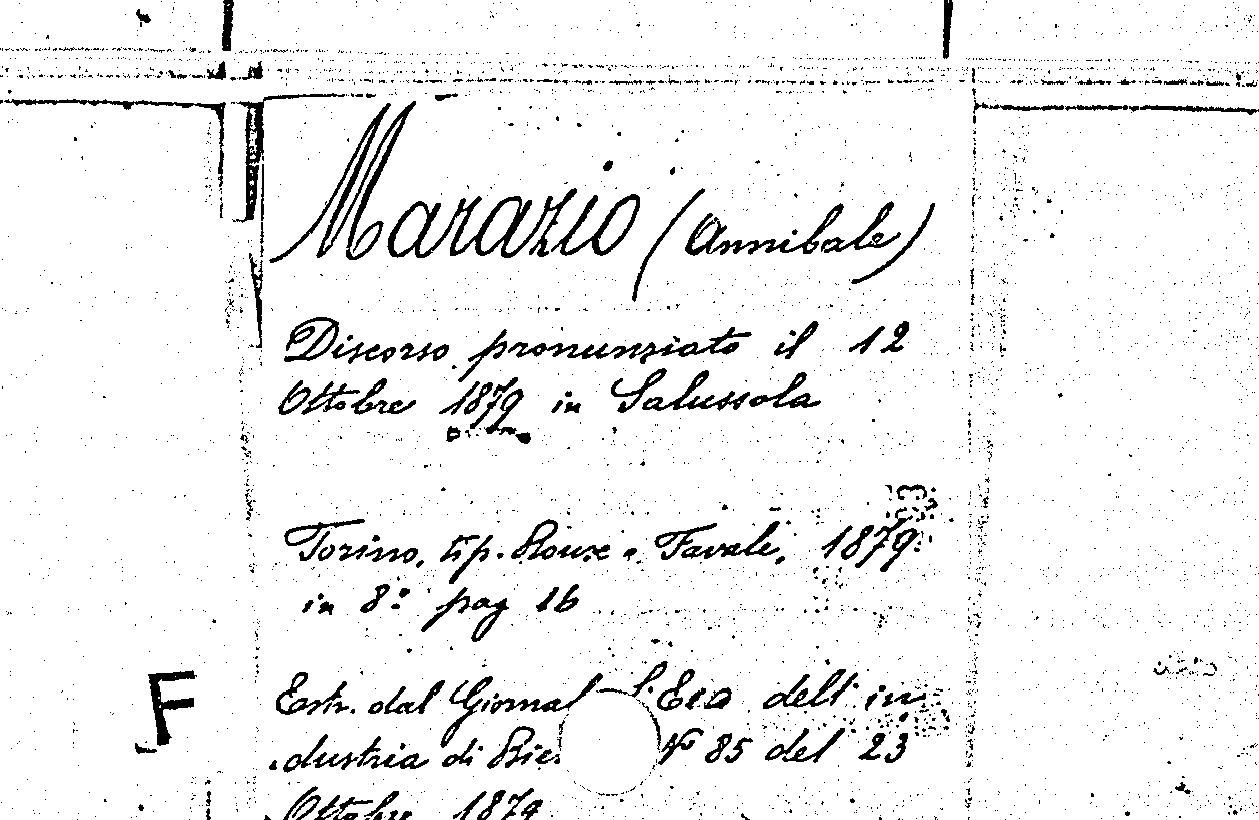 Marazio (Annibale)
Discorso pronunziato il 12
Ottobre 1879 in Salussola
Torino, tip. Roux e Favale, 1879
in 8º pag 16
Estr. dal Giornal l'Eco dell'in
F
dustria di Bie N 85 del 23
Ottobre 1879